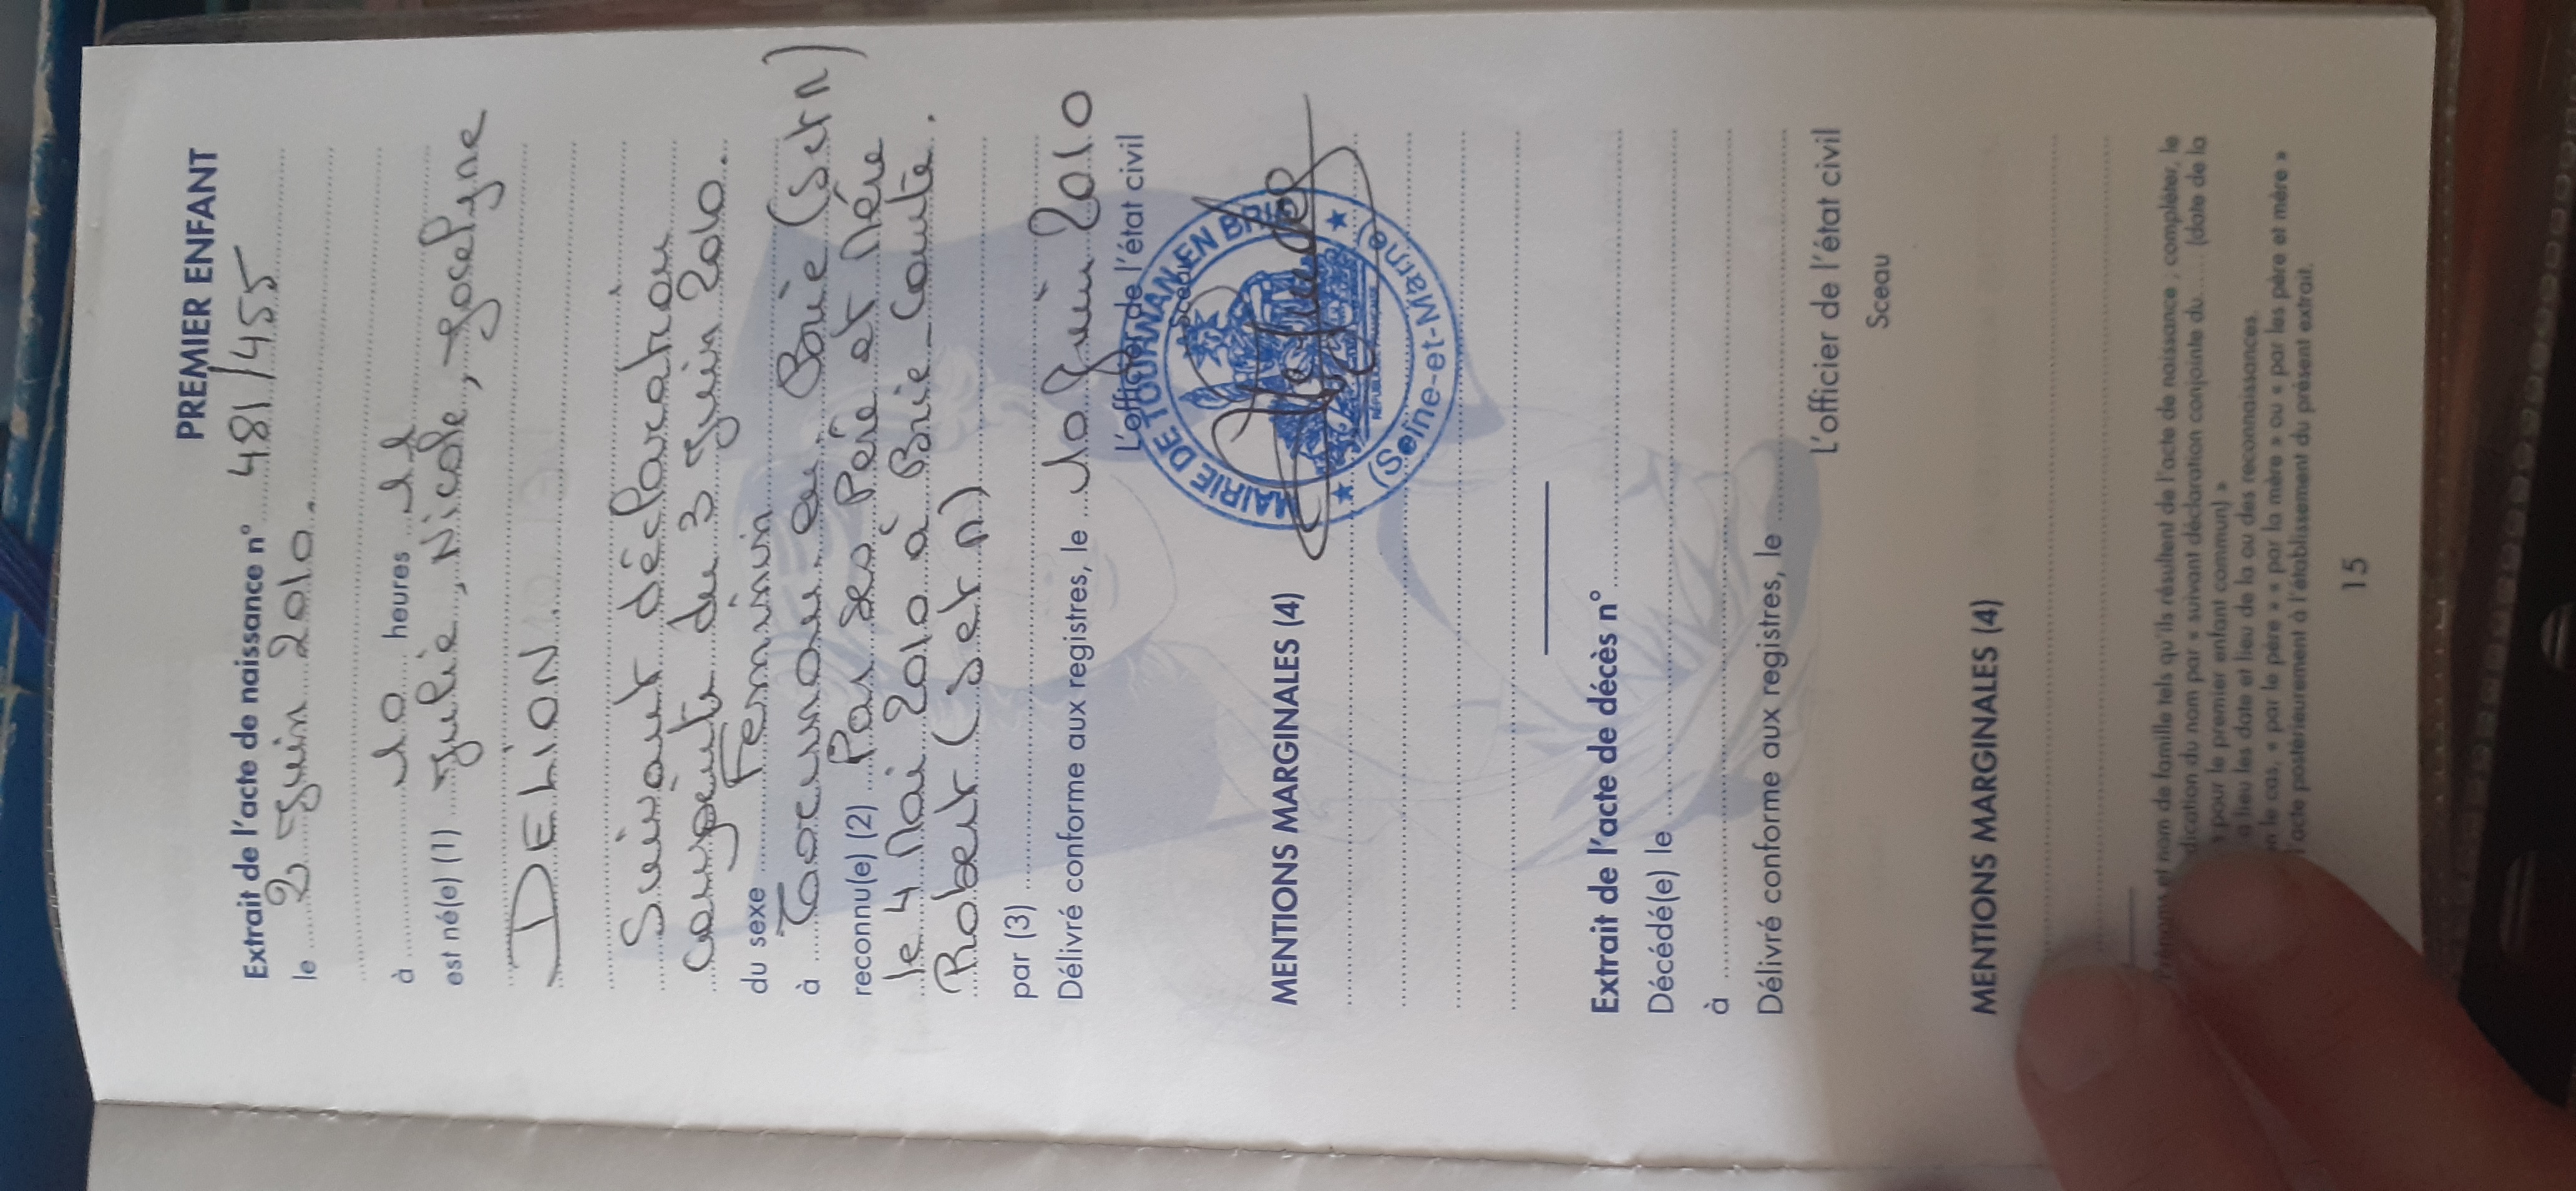 PREMIER ENFANT
Extrait de l'acte de naissance n° 481/455
le 2 Juin 2010.
à 10 heures 11
est né(e) (1) Julie, Nicole, Jocelyne
DELION
Suivant déclaration
conjointe du 3 Juin 2010.
du sexe Feminin
à Tournan en Brie (S et M)
reconnu(e) (2) Par ses Père et Mère
le 4 Mai 2010 à Brie-Comte.
Robert (S et M)
par (3)
Délivré conforme aux registres, le 10 Juin 2010
L'officier de l'état civil
Sceau
MAIRIE DE TOURNAN EN BRIE
(Seine-et-Marne)
MENTIONS MARGINALES (4)
Extrait de l'acte de décès n°
Décédé(e) le
à
Délivré conforme aux registres, le
L'officier de l'état civil
Sceau
MENTIONS MARGINALES (4)
et nom de famille tels qu'ils résultent de l'acte de naissance ; compléter, le
dication du nom par « suivant déclaration conjointe du ...... (date de la
pour le premier enfant commun) »
lieu les date et lieu de la ou des reconnaissances.
le cas, « par le père » « par la mère » ou « par les père et mère »
l'acte postérieurement à l'établissement du présent extrait.
15